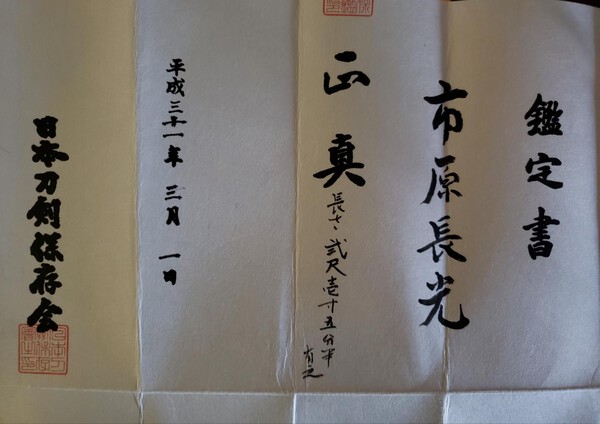 鑑定書
市原長光
正真
長さ、弐尺壱寸五分半
有之
平成三十一年 三月 一日
日本刀剣保存会